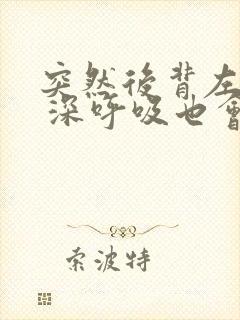 突然後背左
深呼吸也會
索波特